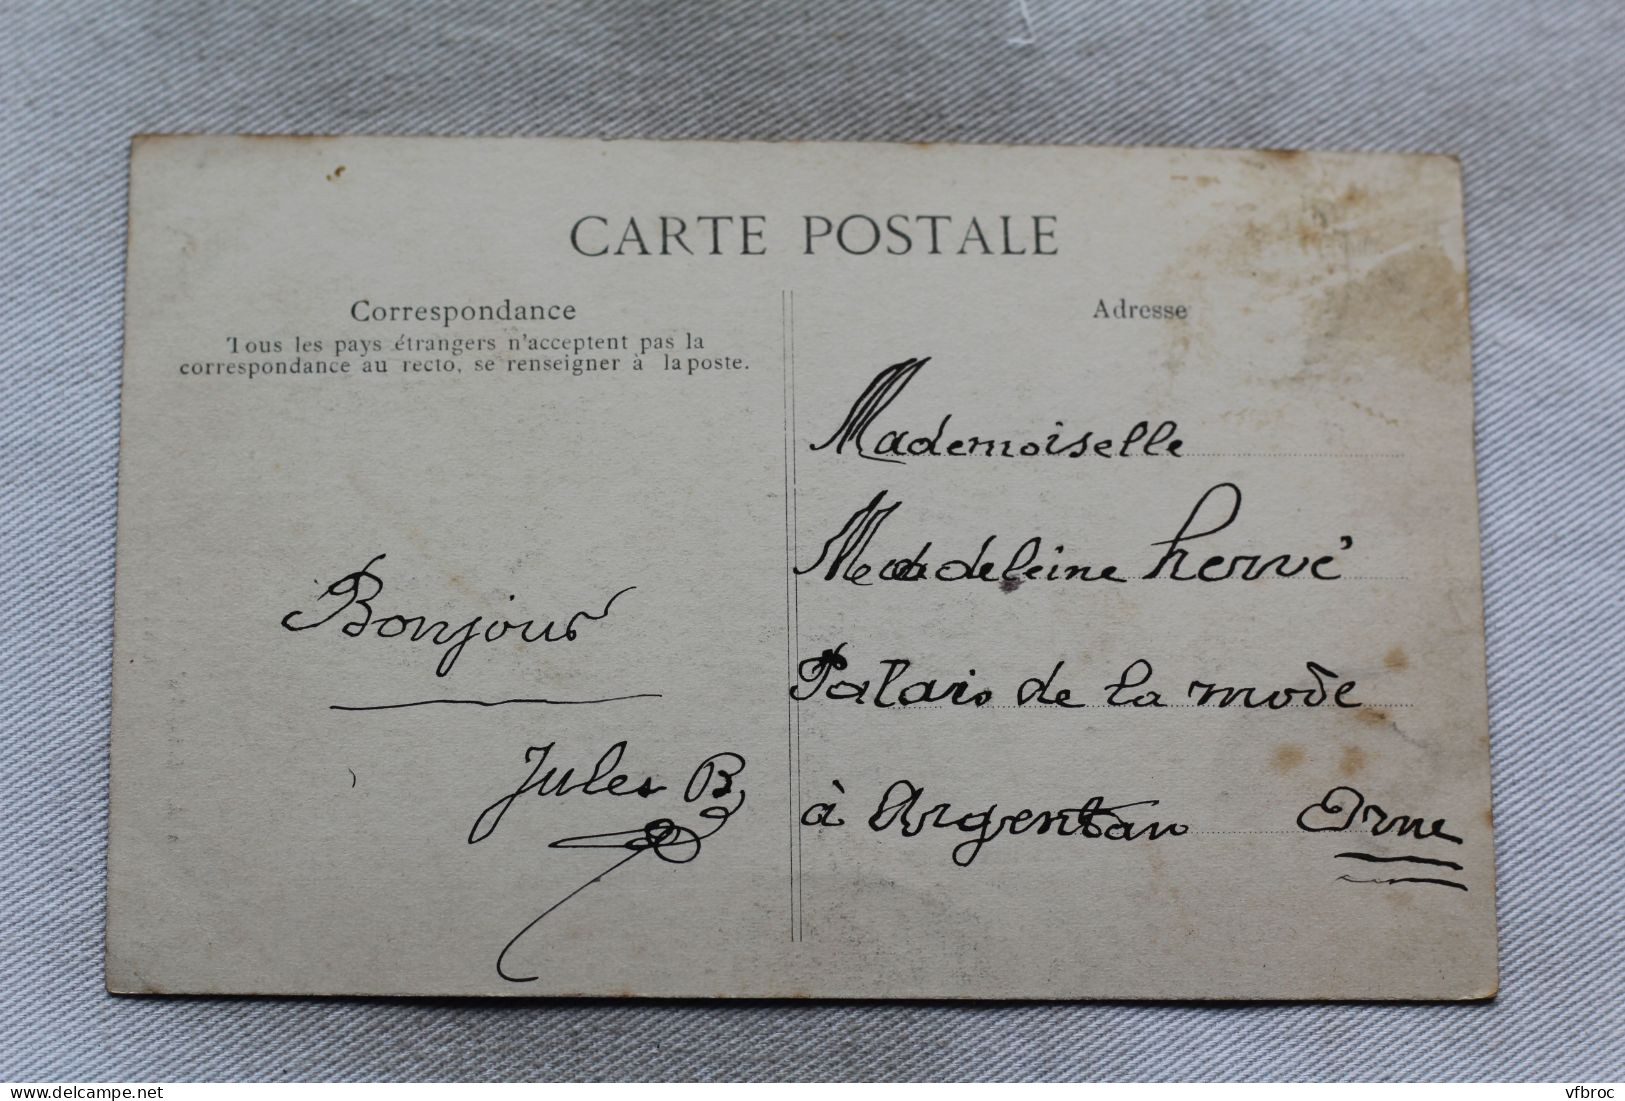 CARTE POSTALE
Correspondance
Tous les pays étrangers n'acceptent pas la
correspondance au recto, se renseigner à la poste.
Bonjour
Jules B
Adresse
Mademoiselle
Madeleine hervé
Palais de la mode
à Argentan Orne
www.delcampe.net
vfbroc